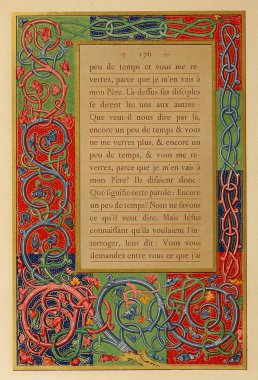 176
peu de temps et vous me re
verrez, parce que je m'en vais à
mon Père. Là-dessus ses disciples
se dirent les uns aux autres :
Que veut-il nous dire par là,
encore un peu de temps & vous
ne me verrez plus, & encore un
peu de temps, & vous me re-
verrez, parce que je m'en vais à
mon Père? Ils disoient donc :
Que signifie cette parole : Encore
un peu de temps? Nous ne savons
ce qu'il veut dire. Mais Jésus
connaissant qu'ils voulaient l'in-
terroger, leur dit : Vous vous
demandez entre vous ce que j'ai